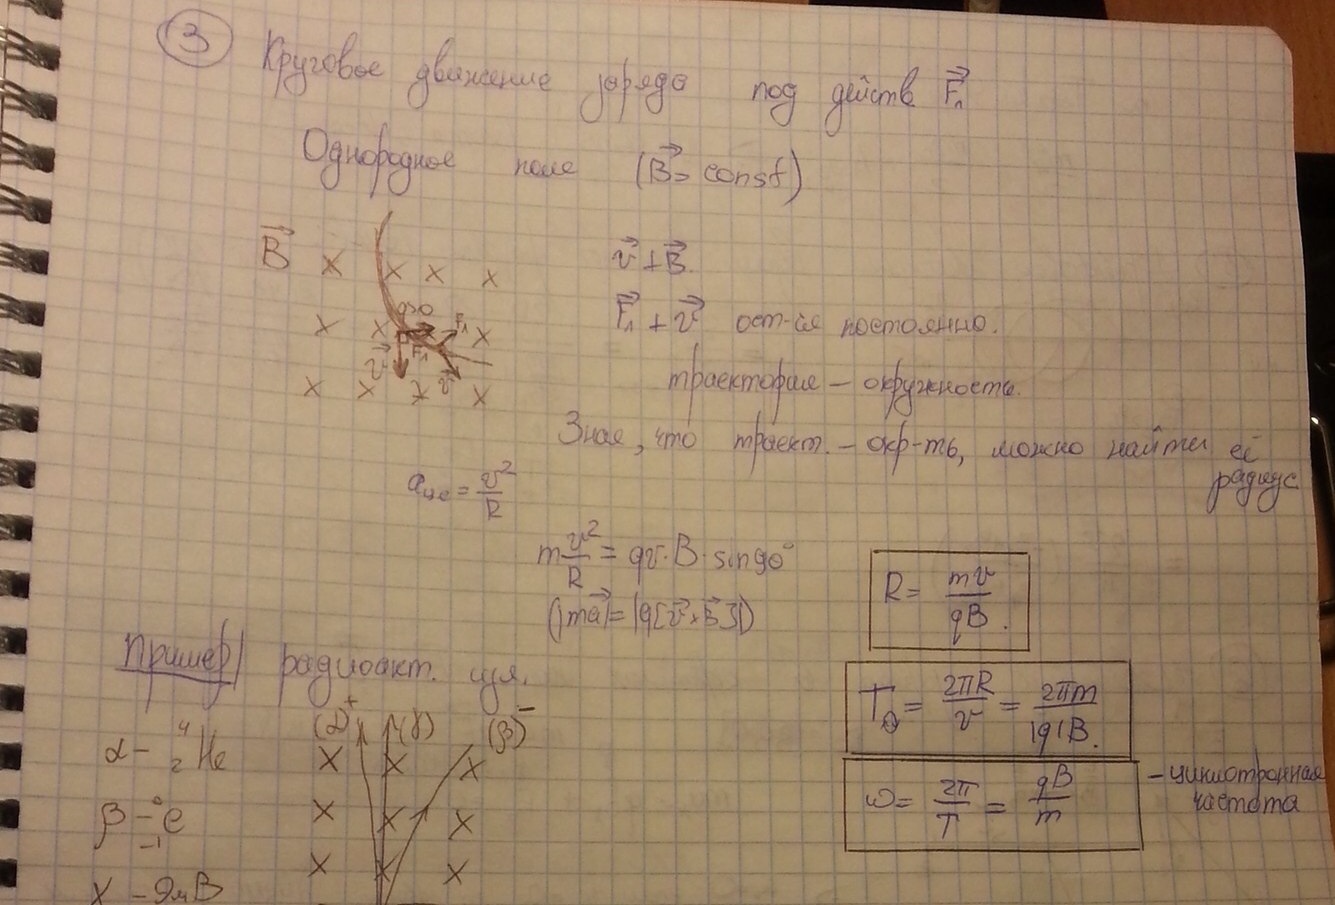 3
Круговое движение заряда под действ. F⃗л
Однородное поле (B⃗ = const)
B⃗
v⃗ ⊥ B⃗.
q>0
F⃗л ⊥ v⃗ ост-ся постоянно.
Fл
v⃗
Fл
v⃗
траектория – окружность.
Зная, что траект. – окр-ть, можно найти её
радиус
aцс = v²/R
m v²/R = qv·B·sin90°
(|ma⃗| = |q[v⃗×B⃗]|)
R = mv/qB.
T₀ = 2πR/v = 2πm/|q|B.
ω = 2π/T = qB/m – циклотронная
частота
Пример| радиоакт. изл.
(α)⁺ (γ) (β)⁻
α – ⁴₂He
β – ⁰₋₁e
γ – ЭмВ